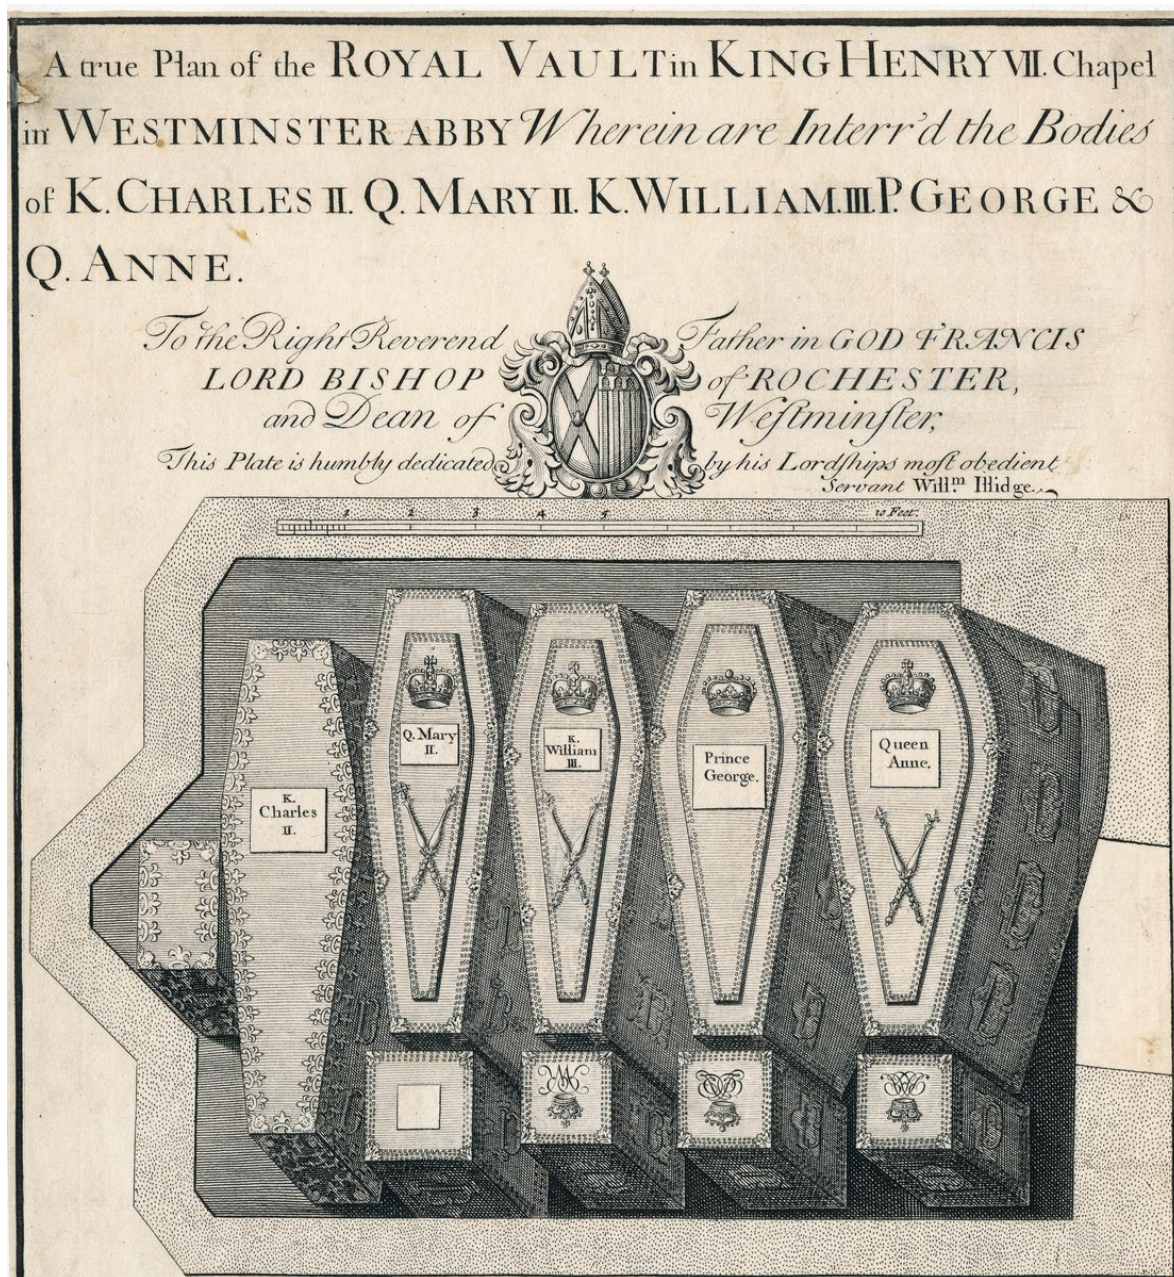 A true Plan of the ROYAL VAULT in KING HENRY VII. Chapel
in WESTMINSTER ABBY Wherein are Interr'd the Bodies
of K. CHARLES II. Q. MARY II. K. WILLIAM. III. P. GEORGE &
Q. ANNE.
To the Right Reverend Father in GOD FRANCIS
LORD BISHOP of ROCHESTER,
and Dean of Weſtminſter,
This Plate is humbly dedicated by his Lordſhips moſt obedient
Servant Will.m Illidge.
1 2 3 4 5 10 Feet.
Q. Mary
II.
K.
William
III.
Prince
George.
Queen
Anne.
K.
Charles
II.